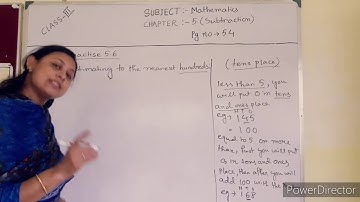 CLASS-III
SUBJECT:-Mathematics
CHAPTER:-5 (Subtraction)
Pg no → 54
Practise 5.6
Estimating to the nearest hundreds (tens place)
less than 5, you
will put 0 in tens
and ones place
H T O
eg → 1 4 5
= 100
equal to 5 or more
than, first you will put
0s in tens and ones
place then after you will
add 100 with the
H T O
eg → 1 6 8
PowerDirector